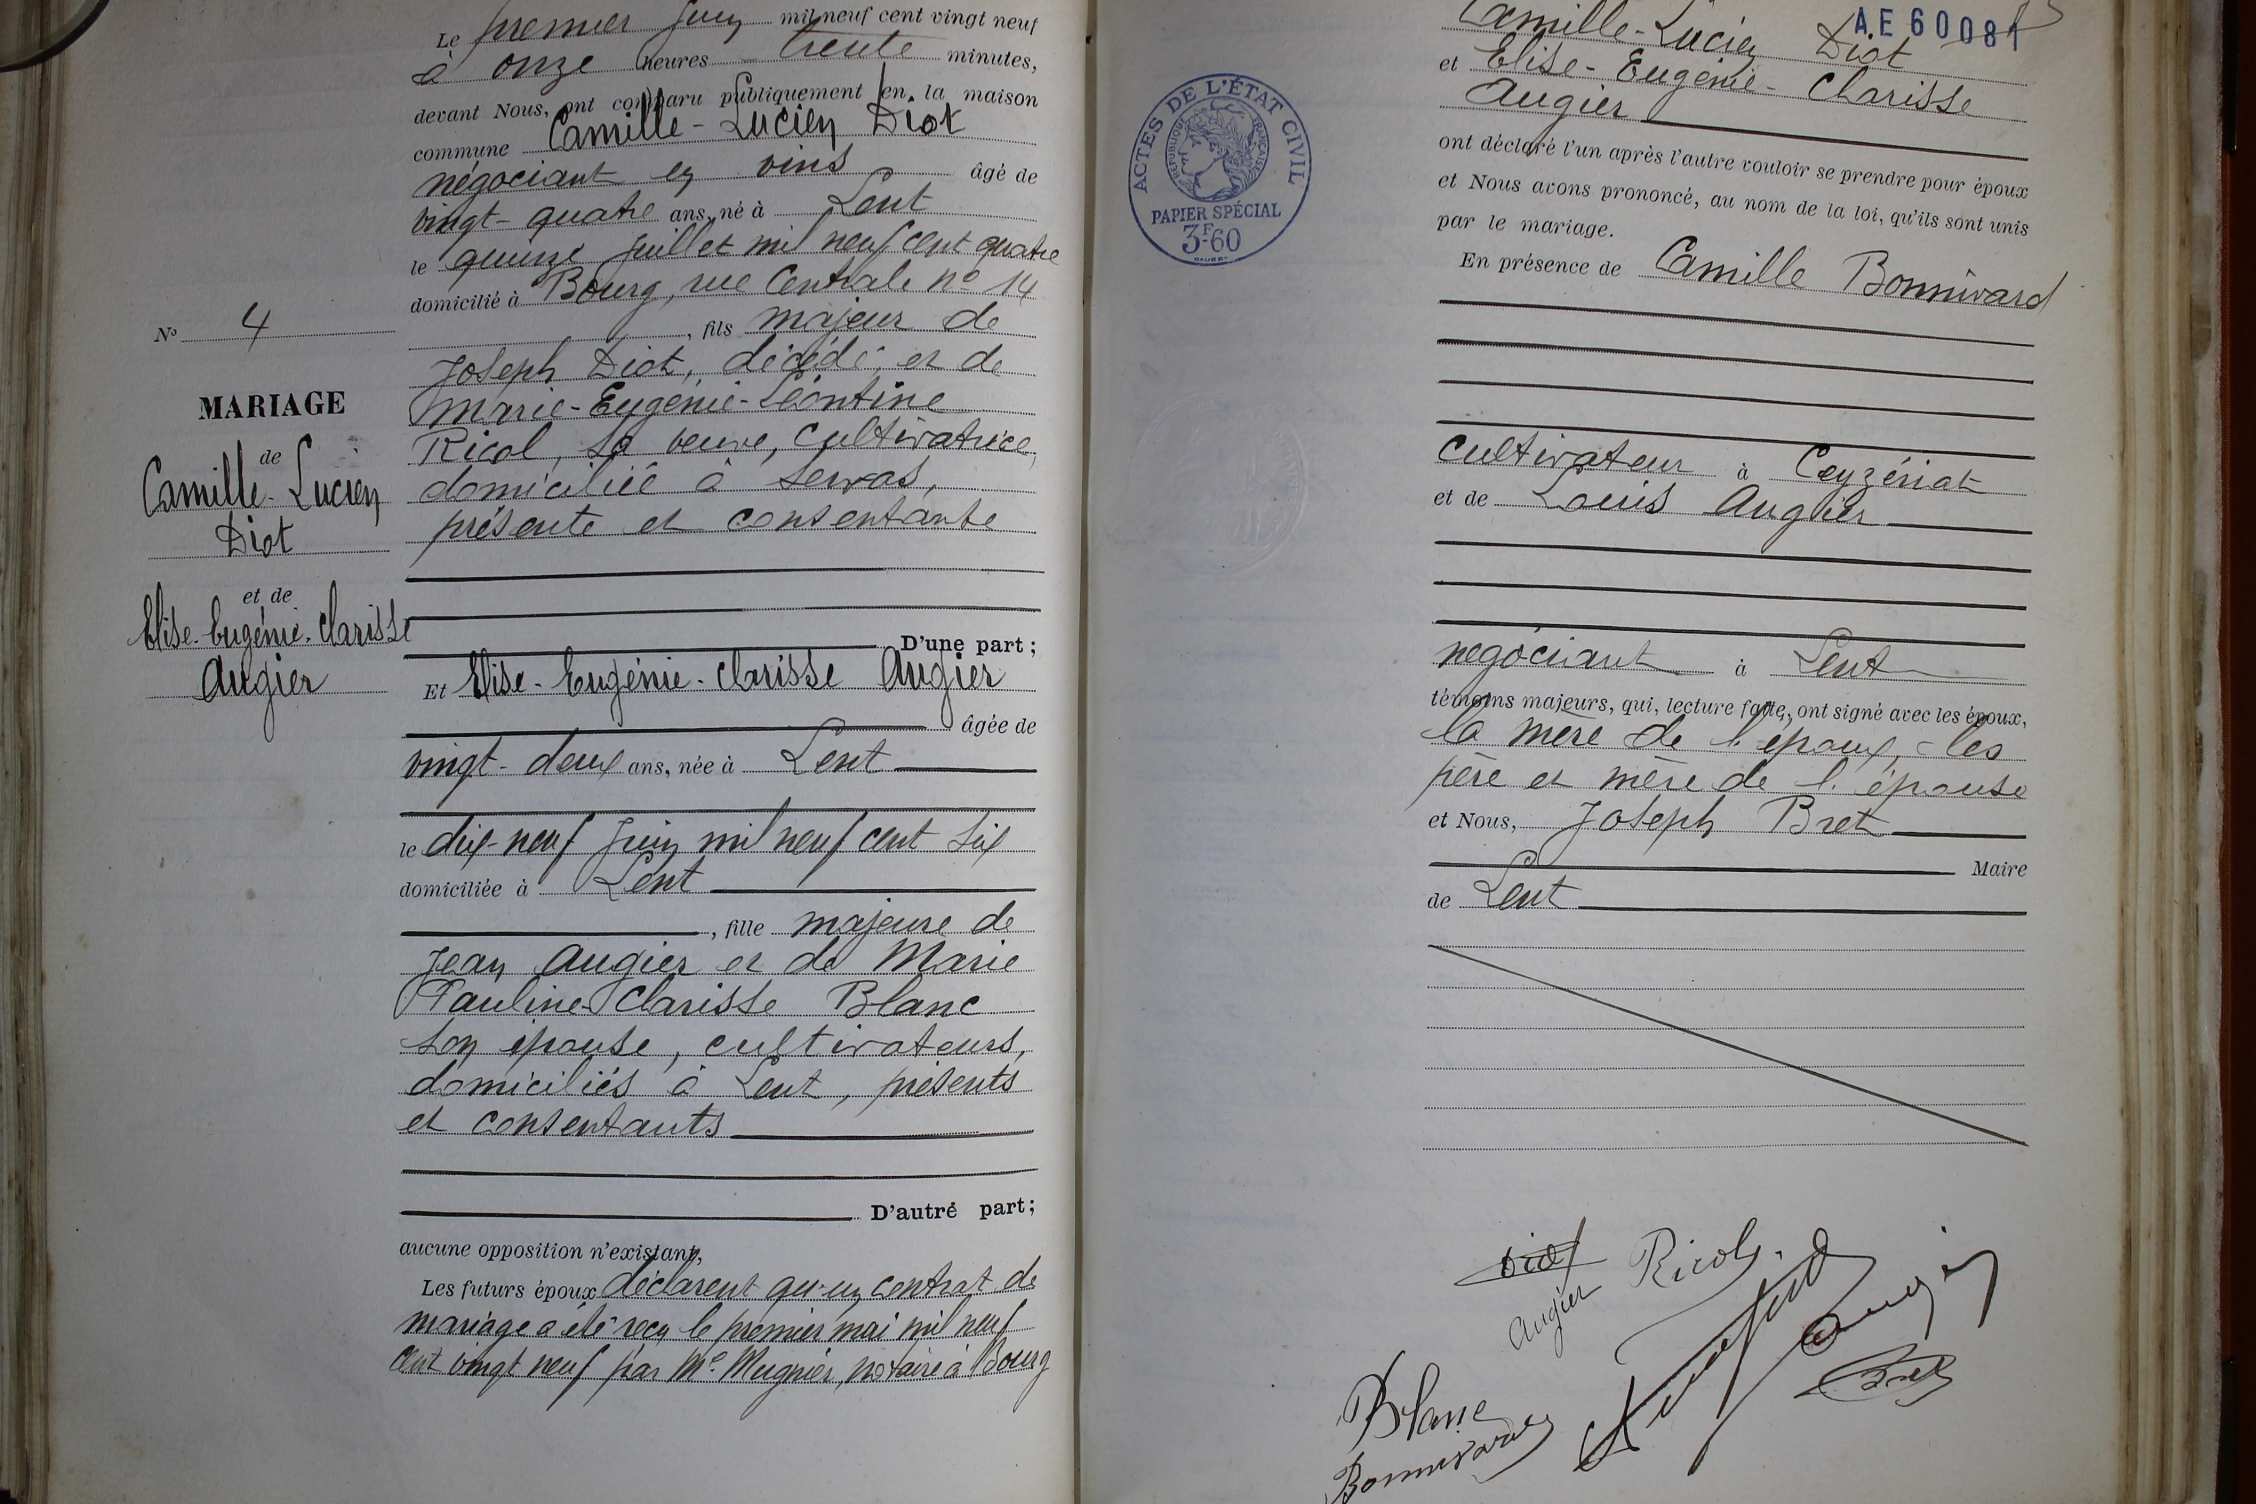 Le premier Juin mil neuf cent vingt neuf
à onze heures trente minutes,
devant Nous, ont comparu publiquement en la maison
commune Camille-Lucien Diot
négociant en vins âgé de
vingt-quatre ans, né à Lent
le quinze juillet mil neuf cent quatre
domicilié à Bourg, rue Centrale no 14
, fils majeur de
Joseph Diot, décédé, et de
Marie-Eugénie-Léontine
Ricol, sa veuve, cultivatrice,
domiciliée à Servas,
présente et consentante
D'une part;
Et Elise-Eugénie-Clarisse Augier
âgée de
vingt-deux ans, née à Lent
le dix-neuf Juin mil neuf cent six
domiciliée à Lent
, fille majeure de
Jean Augier et de Marie
Pauline Clarisse Blanc
son épouse, cultivateurs,
domiciliés à Lent, présents
et consentants
D'autre part;
aucune opposition n'existant,
Les futurs époux déclarent qu'un contrat de
mariage a été reçu le premier mai mil neuf
cent vingt neuf par Me Mugnier, notaire à Bourg
No 4
MARIAGE
de
Camille-Lucien
Diot
et de
Elise-Eugénie-Clarisse
Augier
AE 60081
Camille-Lucien Diot
et Elise-Eugénie-Clarisse
Augier
ont déclaré l'un après l'autre vouloir se prendre pour époux
et Nous avons prononcé, au nom de la loi, qu'ils sont unis
par le mariage.
En présence de Camille Bonnivard
cultivateur à Ceyzériat
et de Louis Augier
négociant à Lent
témoins majeurs, qui, lecture faite, ont signé avec les époux,
la mère de l'époux, les
père et mère de l'épouse
et Nous, Joseph Bret
Maire
de Lent
ACTES DE L'ÉTAT CIVIL
RÉPUBLIQUE FRANÇAISE
PAPIER SPÉCIAL
3F60
Diot
Ricol
Augier
Augier
Blanc
Bret
Bonnivard